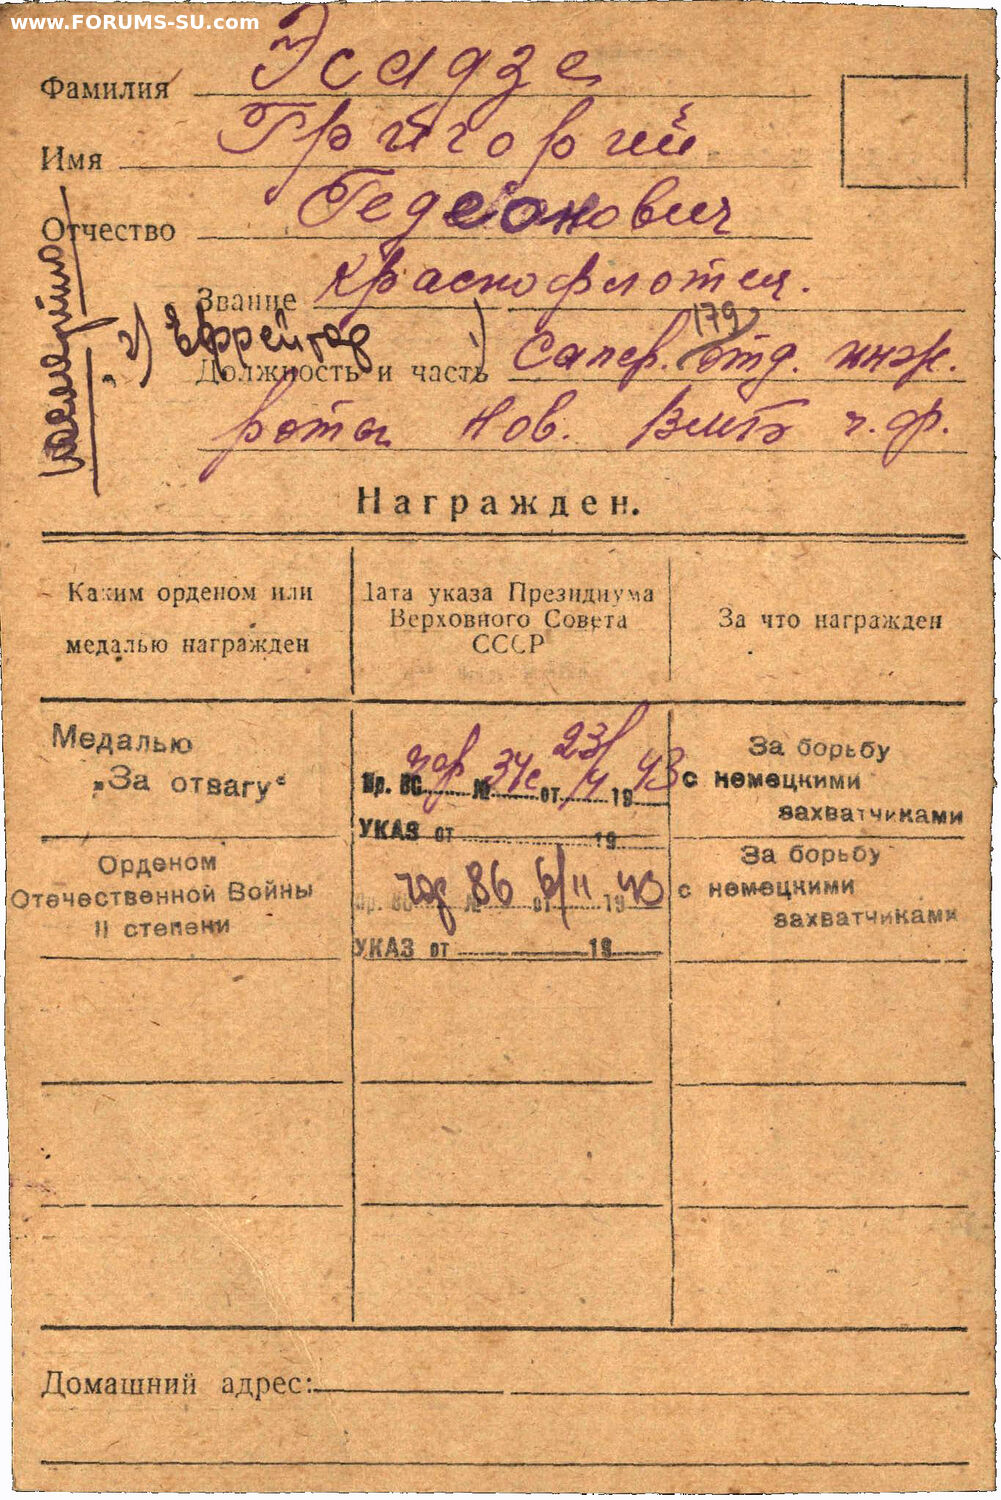 www.FORUMS-SU.com
Фамилия Эсадзе
Имя Григорий
Отчество Гедеонович
Звание Краснофлотец.
2) Ефрейтор
179
Должность и часть 1) Сапер. отд. инж.
роты Нов. ВМБ ч.ф.
Награжден.
Каким орденом или
медалью награжден
Дата указа Президиума
Верховного Совета
СССР
За что награжден
Медалью
„За отвагу“
Пр. ВС чф № 34с от 23/4 1943
УКАЗ от 19
За борьбу
с немецкими
захватчиками
Орденом
Отечественной Войны
II степени
Пр. ВС чф № 86 от 6/11 1943
УКАЗ от 19
За борьбу
с немецкими
захватчиками
Домашний адрес: